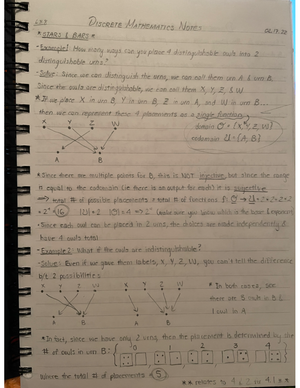 DISCRETE MATHEMATICS NOTES
* STARS & BARS *
- Example: How many ways can you place 4 distinguishable owls into 2
distinguishable urns?
- Solve: Since we can distinguish the urns, we can call them urn A & urn B.
Since the owls are distinguishable, we can call them X, Y, Z, & W
* If we place X in urn B, Y in urn B, Z in urn A, and W in urn B...
then we can represent these 4 placements as a single function
X Y Z W
domain = {X, Y, Z, W}
codomain = {A, B}
A B
* Since there are multiple points for B, this is NOT injective, but since the range
is equal to the codomain (ie there is an output for each) it is surjective
total # of possible placements = total # of functions = 2·2·2·2
= 2⁴ = 16
- Since each owl can be placed in 2 urns, the choices are made independently &
have 4 owls total.
- Example 2: What if the owls are indistinguishable?
- Solve: Even if we gave them labels, X, Y, Z, W, you can't tell the difference
b/t 2 possibilities
X Y Z W X Y Z W
* In both cases, one
there are 3 owls in B &
1 owl in A
A B A B
* In fact, since we have only 2 urns, then the placement is determined by the
# of owls in urn B:
0 1 2 3 4
where the total # of placements = 5